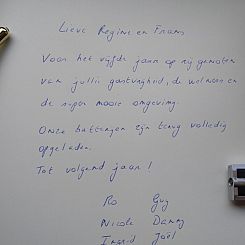 Lieve Regine en Frans
Voor het vijfde jaar op rij genoten
van jullie gastvrijheid, de wellness en
de super mooie omgeving.
Onze batterijen zijn terug volledig
opgeladen.
Tot volgend jaar!
Ro Guy
Nicole Danny
Ingrid Joël